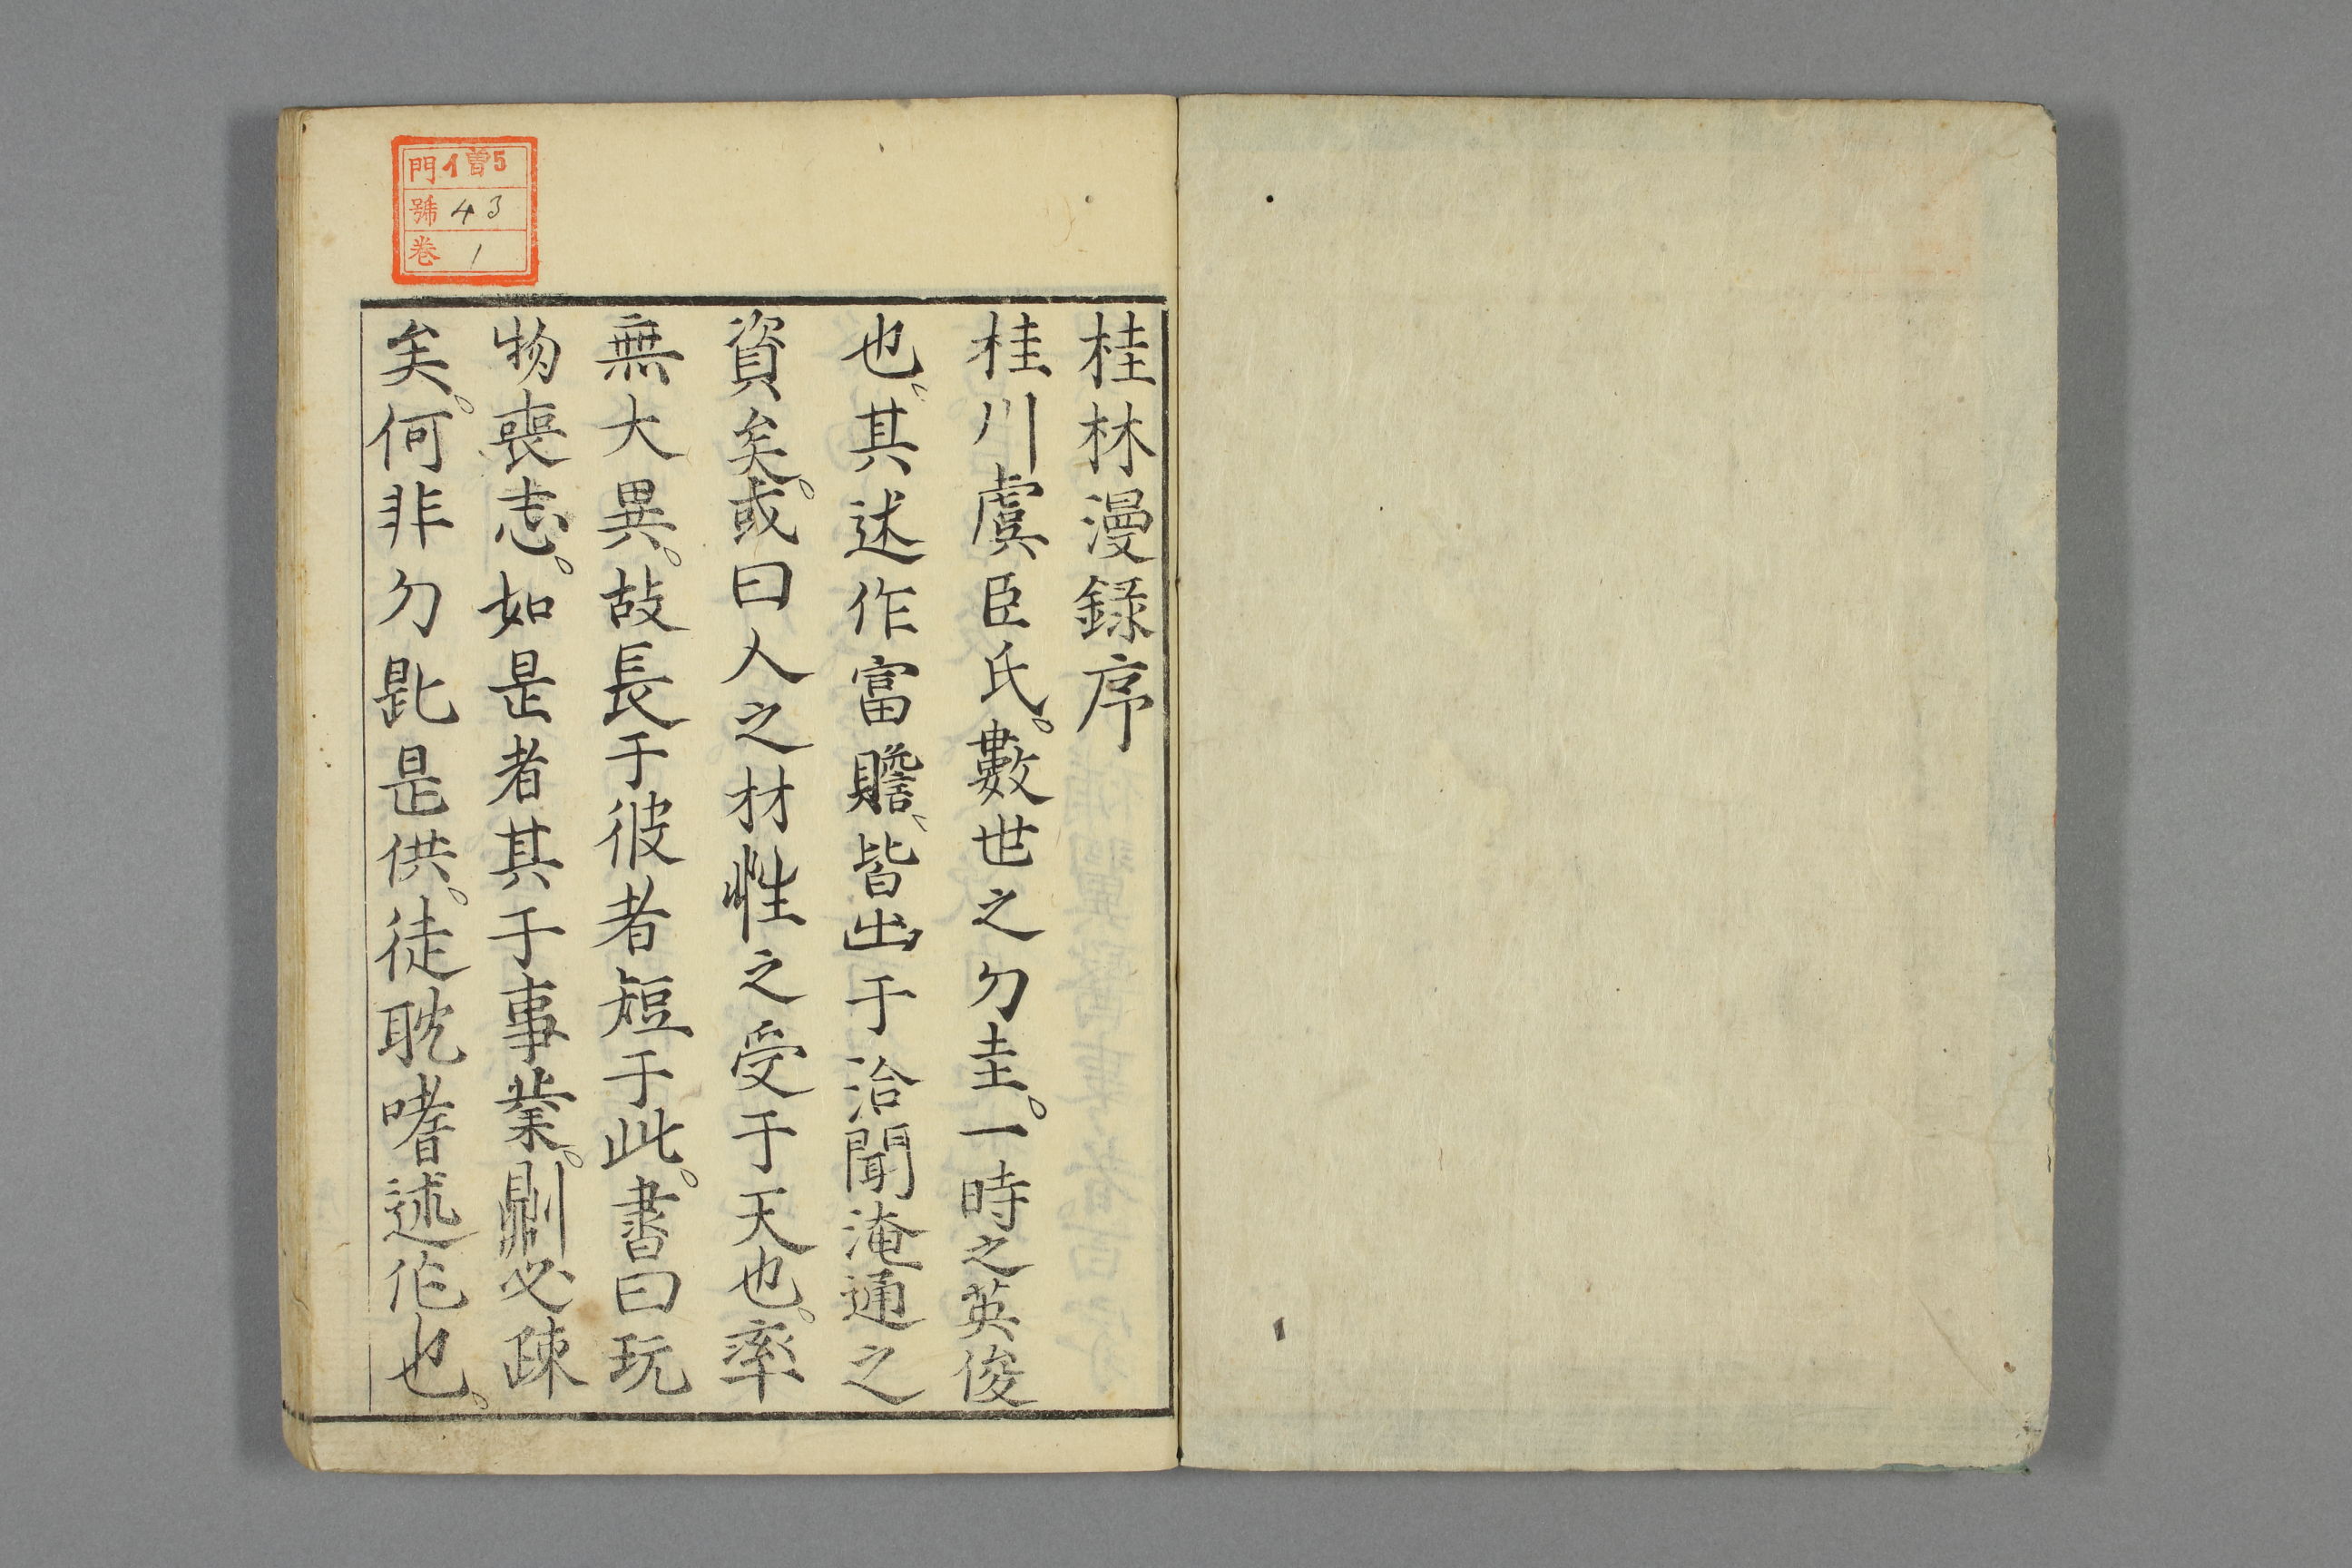 桂林漫録序
桂川虞臣氏。數世之匀圭。一時之英俊
也、其述作富贍、皆出于洽聞淹通之
資矣。或曰人之材性之受于天也。率
無大異。故長于彼者短于此。書曰玩
物喪志。如是者其于事業。則必疎
矣。何非匀匙是供。徒耽嗜述作也。
門 イ曽5
號 43
巻 1